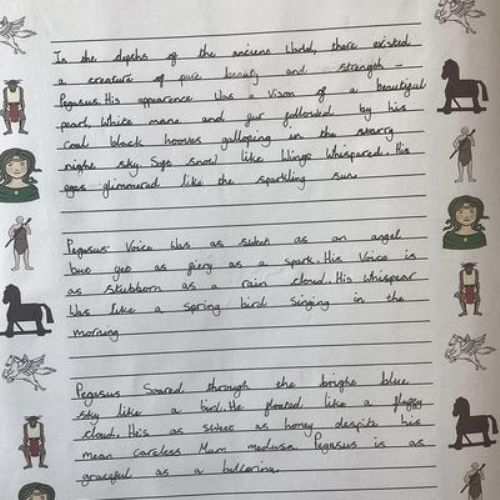 In the depths of the anciene World, there existed
a creature of pure beauty and strength -
Pegasus. His appearance Was a Vison of a beautiful
pearl, White mane and fur followed by his
coal black hooves galloping in the starry
night sky. Soft Snow like Wings Whispered. His
eyes glimmered like the sparkling sun.
Pegasus Voice Was as sweet as an angel
but yet as fiery as a spark. His Voice is
as stubborn as a rain cloud. His Whispear
Was like a spring bird singing in the
morning
Pegasus Soared through the bright blue
sky like a bird. He floated like a fluffy
cloud. He is as sweet as honey despite his
mean careless Mum medusa. Pegasus is as
graceful as a ballerina.